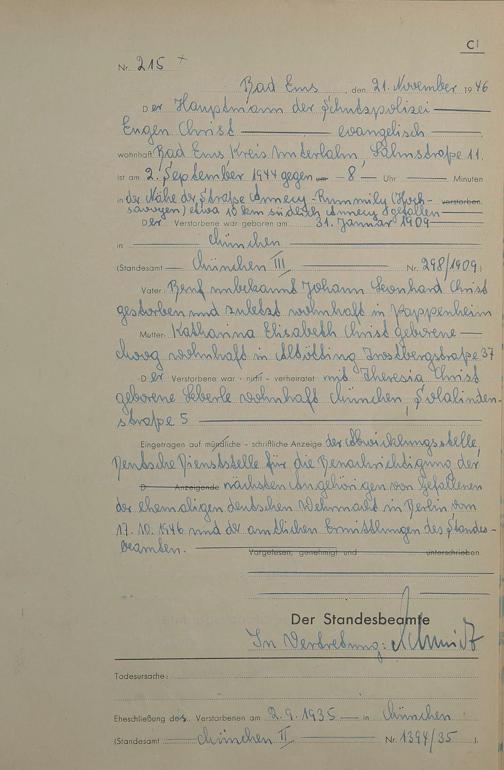 C1
Nr. 215
Bad Ems, den 21. November 1946
Der Hauptmann der Schutzpolizei
Eugen Christ evangelisch
wohnhaft Bad Ems, Kreis Unterlahn, Lahnstraße 11
ist am 2. September 1944 gegen 8 Uhr Minuten
in der Nähe der Straße Annecy-Rummily (Hoch-
savoyen) etwa 10 km südlich Annecy gefallen verstorben.
Der Verstorbene war geboren am 31. Januar 1909
in München
(Standesamt München III Nr. 298/1909)
Vater: Beruf unbekannt Johann Leonhard Christ
gestorben und zuletzt wohnhaft in Pappenheim
Mutter: Katharina Elisabeth Christ geborene
wohnhaft in Altötting Trostbergstraße 37
Der Verstorbene war - nicht - verheiratet mit Theresia Christ
geborene Eberle wohnhaft München,
straße 5
Eingetragen auf mündliche - schriftliche Anzeige der Abwicklungsstelle,
Deutsche Dienststelle für die Benachrichtigung der
D Anzeigende nächsten Angehörigen von Gefallenen
der ehemaligen deutschen Wehrmacht in Berlin vom
17. 10. 1946 und der amtlichen Ermittlungen des Standes-
beamten.
Vorgelesen, genehmigt und unterschrieben
Der Standesbeamte
In Vertretung: Schmidt
Todesursache:
Eheschließung des Verstorbenen am 2.9.1935 in München
(Standesamt München II Nr. 1394/35 ).